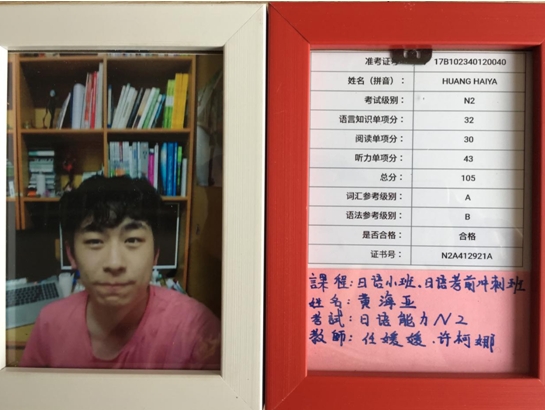 准考证号 17B102340120040
姓名（拼音）： HUANG HAIYA
考试级别： N2
语言知识单项分： 32
阅读单项分： 30
听力单项分： 43
总分： 105
词汇参考级别： A
语法参考级别： B
是否合格： 合格
证书号： N2A412921A
課程：日语小班、日语考前冲刺班
姓名：黄海亚
考試：日语能力N2
教師：任媛媛、许柯娜